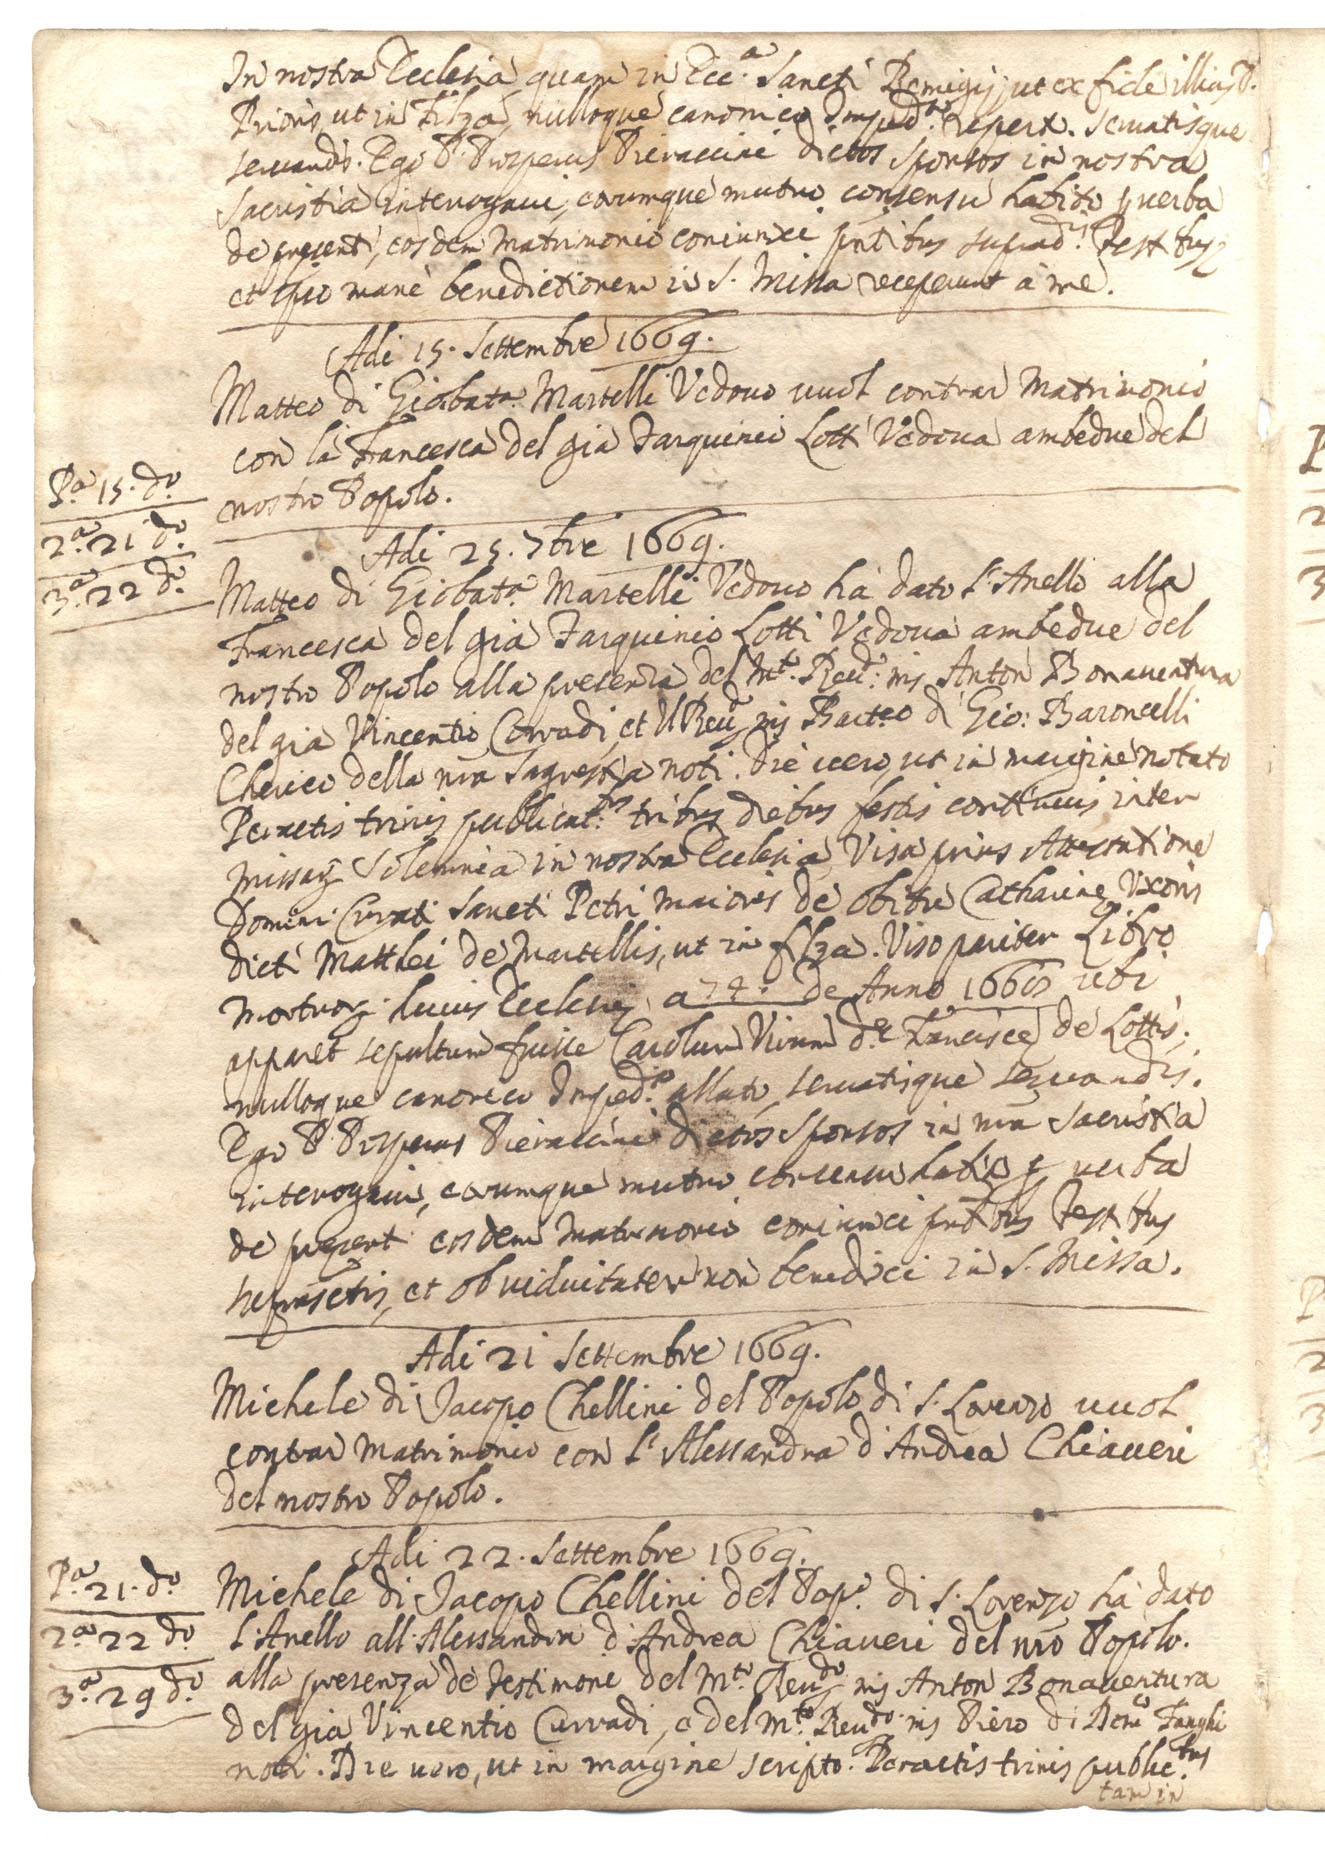 In nostra Ecclesia quam in Ecc.a Sancti Remigij, ut ex fide illius P.
Prioris, ut in Filza, nulloque canonico Imped.to repert. servatisque
servand's. Ego P. Prosperus Pieraccini dictos sponsos in nostra
Sacristia interrogavi, eorumque mutuo consensu habito p verba
de presenti, eosdem Matrimonio coniunxi pntibus suprad.i Testibus,
et ipso mane benedictionem in S. Missa receperunt à me.
Adi 15. Settembre 1669.
Matteo di Giobat.a Martelli Vedovo vuol contrar Matrimonio
con la Francesca del gia Tarquinio Lotti Vedova ambedue del
nostro Popolo.
P.a 15. d.o
2.a 21 d.o
3.a 22 d.o
Adi 25. 7bre 1669.
Matteo di Giobat.a Martelli Vedovo hà dato l'Anello alla
Francesca del gia Tarquinio Lotti Vedova ambedue del
nostro Popolo alla presenza del M.to Reu.do mj Anton Bonaventura
del gia Vincentio Curradi, et Il Reu.d mj Bart.eo di Gio: Baroncelli
Cherico della nra Sagrestia noti. Die vero, ut in margine notato
Peractis trinis publicat.bus tribus diebus festis continuis inter
missarum Solemnia in nostra Ecclesia, Visa prius Attestatione
Domini Curati Sancti Petri Maioris de obitu Catharinę Uxoris
dicti Matthei de Martellis, ut in filza. Viso pariter Libro
mortuorum huius Ecclesię a 74. de Anno 1666 ubi
apparet sepultum fuisse Carolum Virum d.ę Franciscę de Lottis,
nulloque canonico Imped.o allato, servatisque servandis.
Ego P. Prosperus Pieraccini dictos Sponsos in nra Sacristia
interrogavi, eorumque mutuo consensu habito p verba
de present. eosdem Matrimonio coniunxi pntibus Testibus
suprasctis, et ob viduitatem non benedixi in S. Missa.
Adi 21 Settembre 1669.
Michele di Jacopo Chellini del Popolo di S. Lorenzo vuol
contrar Matrimonio con l'Alessandra d'Andrea Chiaveri
del nostro Popolo.
Adi 22. Settembre 1669.
P.a 21. d.o
2.a 22 d.o
3.a 29 d.o
Michele di Jacopo Chellini del Pop.o di S. Lorenzo hà dato
l'Anello all'Alessandra d'Andrea Chiaveri del nro Popolo.
alla presenza de Testimoni del M.to Reu.do mj Anton Bonaventura
del gia Vincentio Curradi, e del M.to Reu.do mj Piero di Dom.co Fanghi
noti. Die vero, ut in margine scripto. Peractis trinis public.bus
tam in